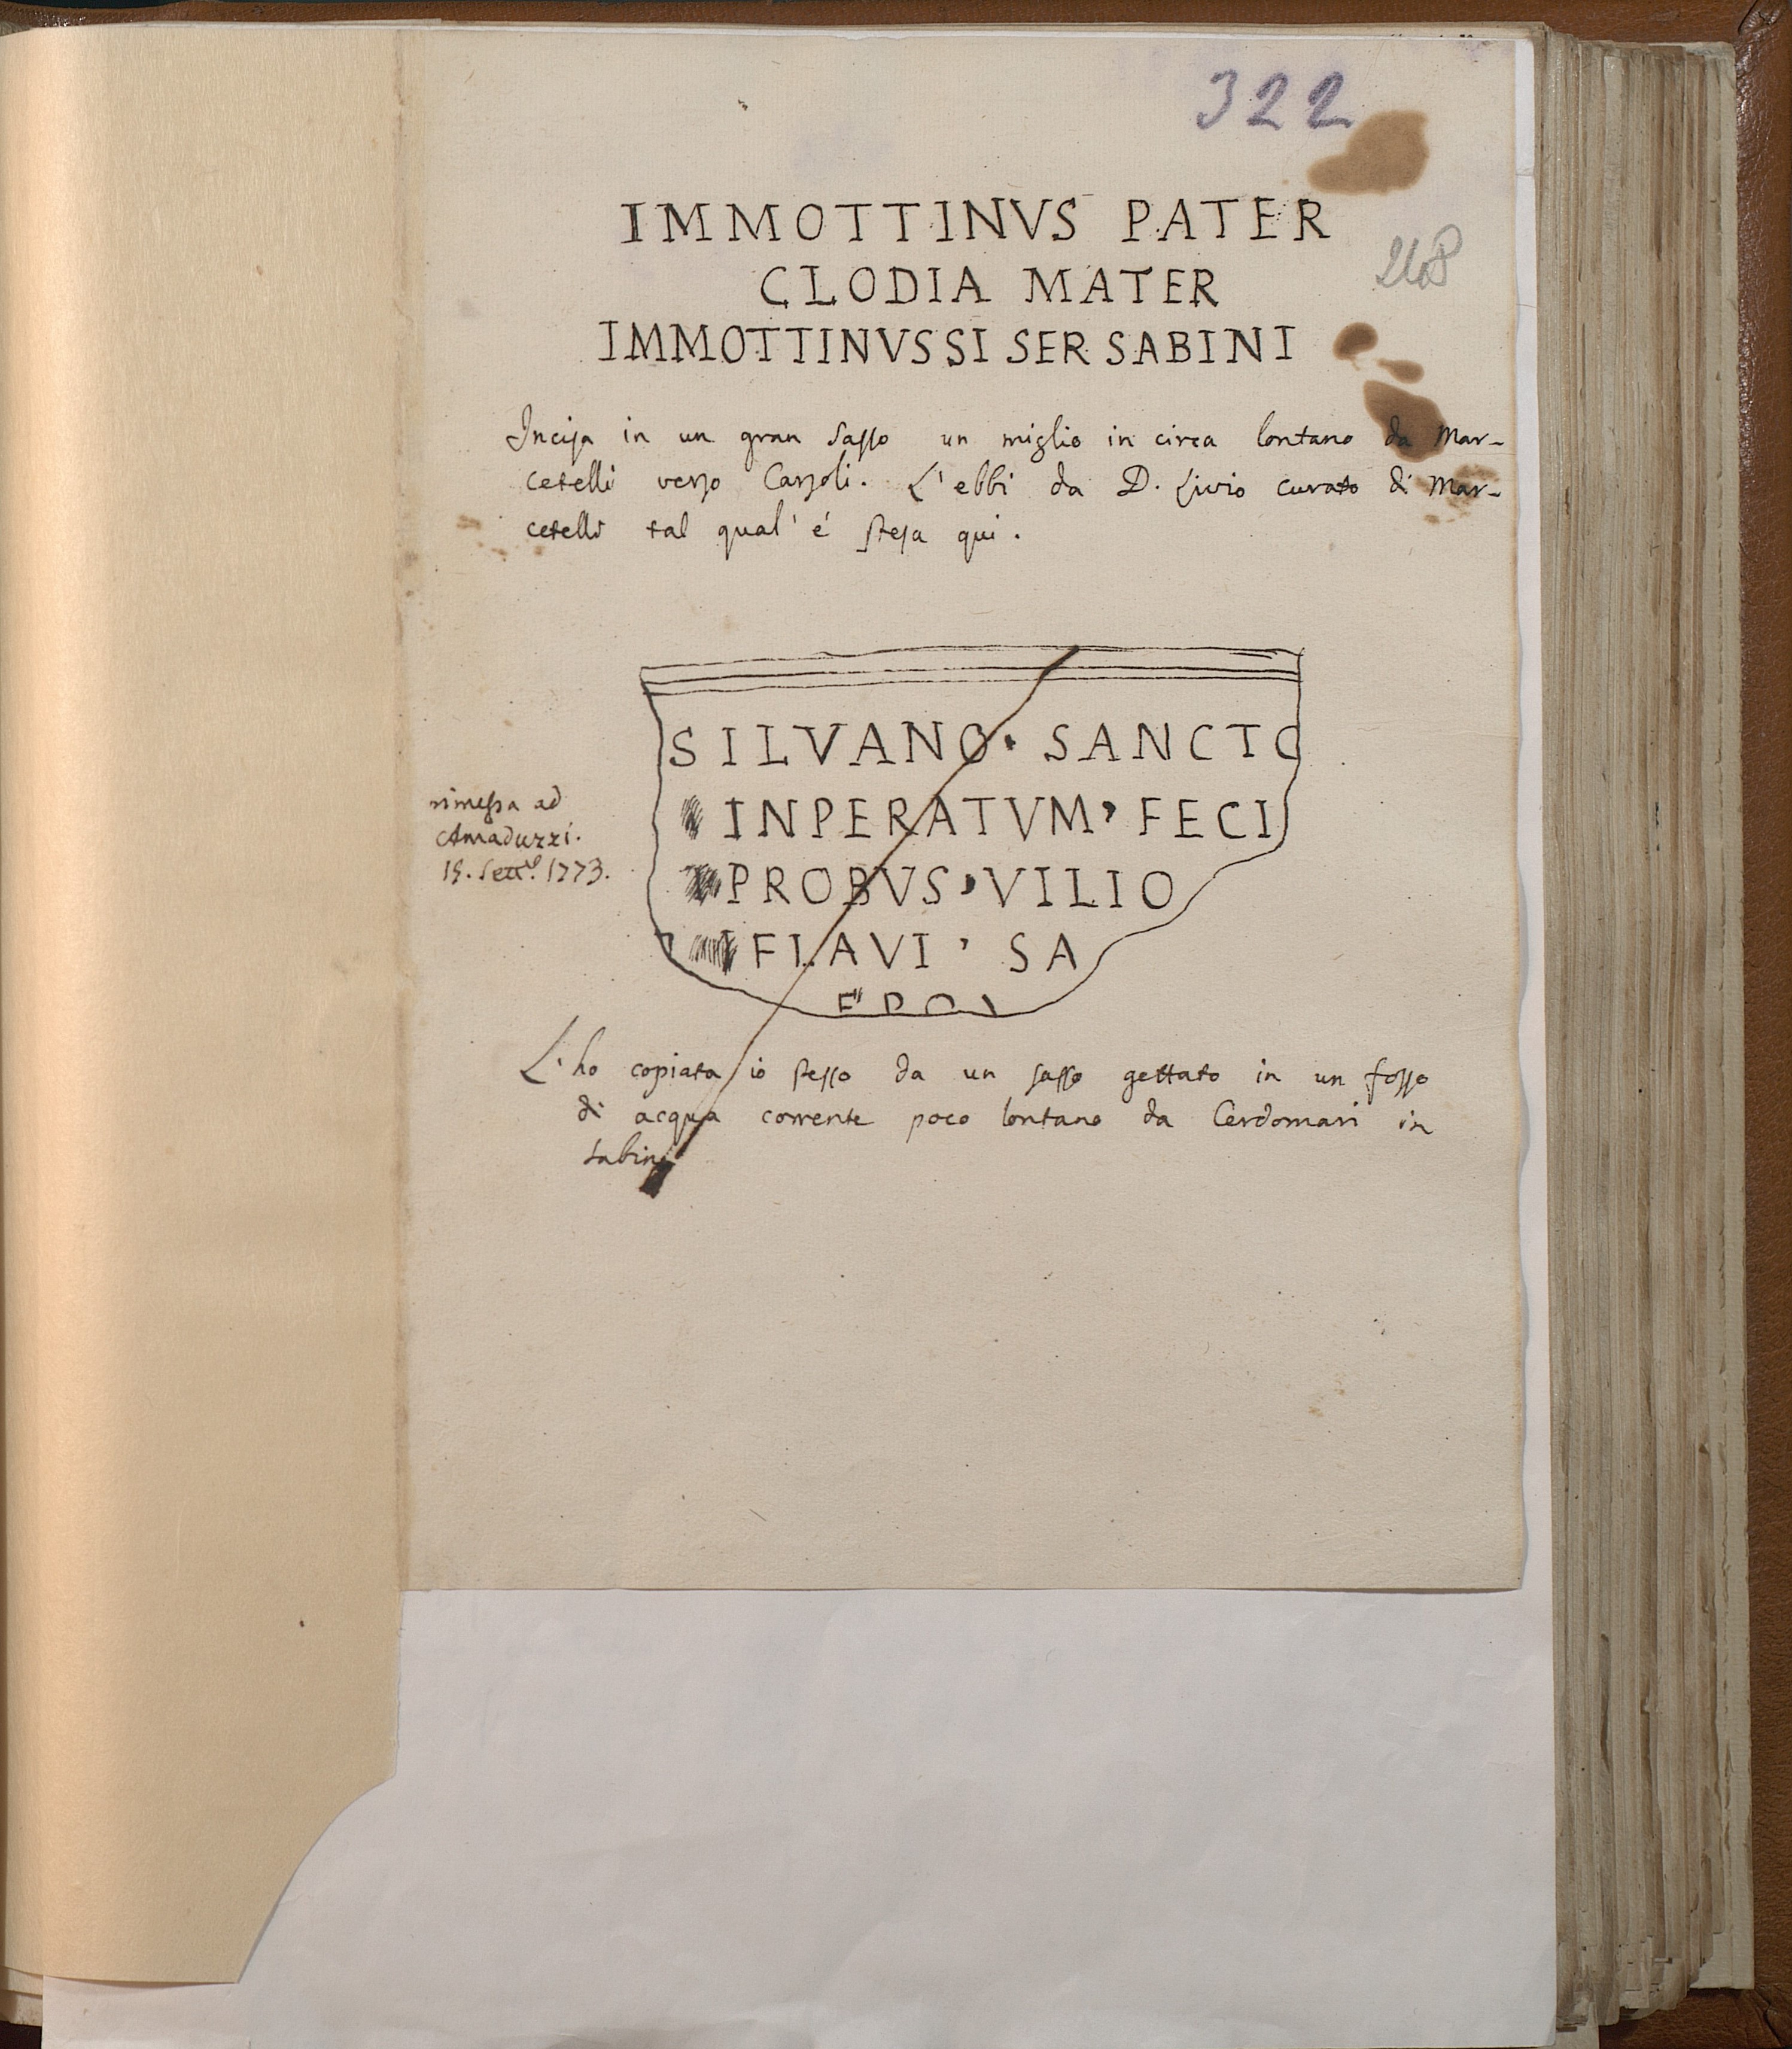 322
IMMOTTINVS PATER
268
CLODIA MATER
IMMOTTINVSSI SER SABINI
Incisa in un gran sasso un miglio in circa lontano da Mar-
cetelli verso Carsoli. L'ebbi da D. Livio curato di Mar-
cetelli tal qual' é stesa qui.
SILVANO · SANCTO
INPERATVM, FECI
PROBVS, VILIO
FLAVI, SA
rimessa ad
Amaduzzi.
L'ho copiata io stesso da un sasso gettato in un fosso
di acqua corrente poco lontano da Cerdomari in
Sabina